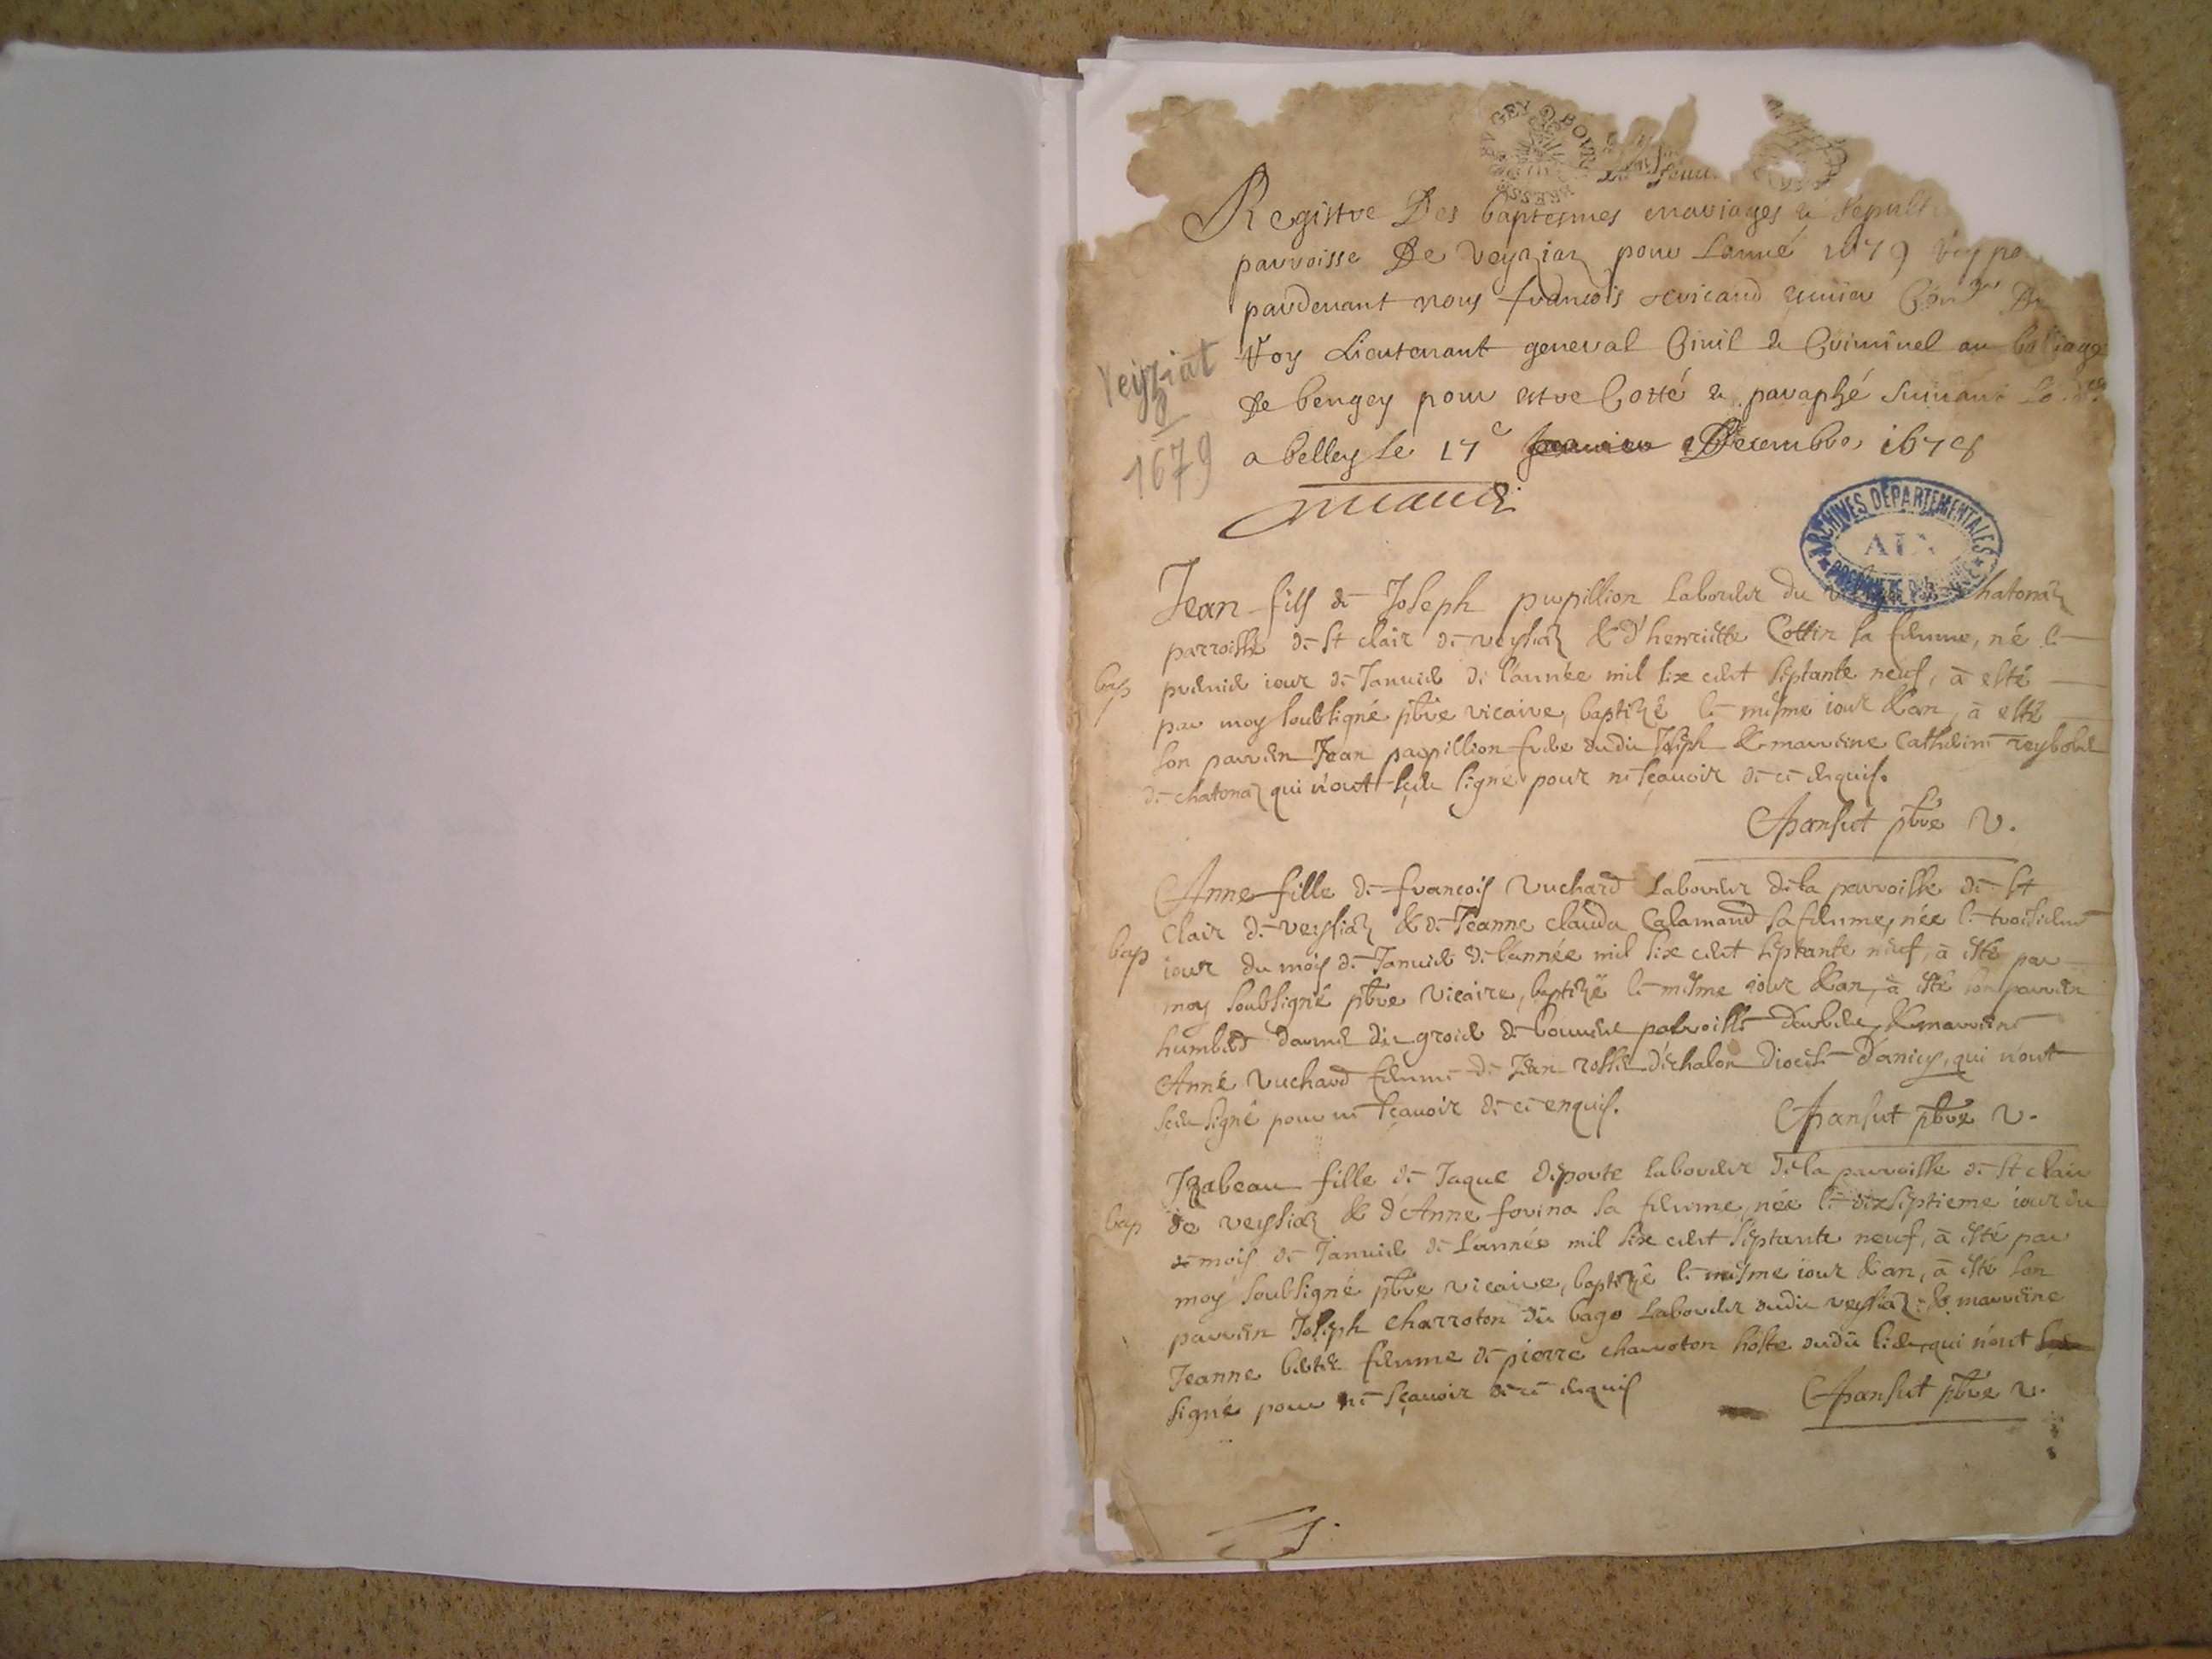 BVGEY BOVR
BRESSE
Registre Des baptesmes mariages & sepult
parroisse De Veyziaz pour Lanné 1679
pardevant nous francois
Roy Lieutenant general Civil & Criminel au balliage
De beugey pour estre Cotté & paraphé suivant
a belley le 17e Janvier Decembre 1678
Veyziat
1679
ARCHIVES DÉPARTEMENTALES
AIN
Jean fils de Joseph papillion laboureur du hatonaz
parroisse de st clair de veysiaz & d'henriette Cottin sa femme, né le
bap
premier iour de Janvier de l'année mil six cent septante neuf, à esté
par moy soubsigné pbre vicaire, baptizé le mesme iour & an, à esté
son parrien Jean papillion frere dudit Joseph & marreine Catherine
de chatonaz qui n'ont sceu signé pour ne sçavoir de ce enquis.
pbre v.
Anne fille de francois Vuchard laboureur de la parroisse de st
Clair de veysiaz & de Jeanne clauda Calamand sa femme, née le troisieme
bap
iour du mois de Janvier de l'année mil six cent septante neuf, à esté par
moy soubsigné pbre vicaire, baptizé le mesme iour & an, à esté son parrien
humbert parroisse & marreine
Anne Vuchard femme de Jean rossier d'échalon diocese d'anicy, qui n'ont
sceu signé pour ne sçavoir de ce enquis.
pbre v.
Izabeau fille de Jaque deporte laboureur de la parroisse de st clair
bap
de veysiaz & d'Anne fovina sa femme, née le dixseptieme iour du
mois de Janvier de l'année mil six cent septante neuf, à esté par
moy soubsigné pbre vicaire, baptizé le mesme iour & an, à esté son
parrien Joseph charroton laboureur dudit veysiaz & marreine
Jeanne femme de pierre charroton hoste dudit lieu, qui n'ont
signé pour ne sçavoir de ce enquis
pbre v.